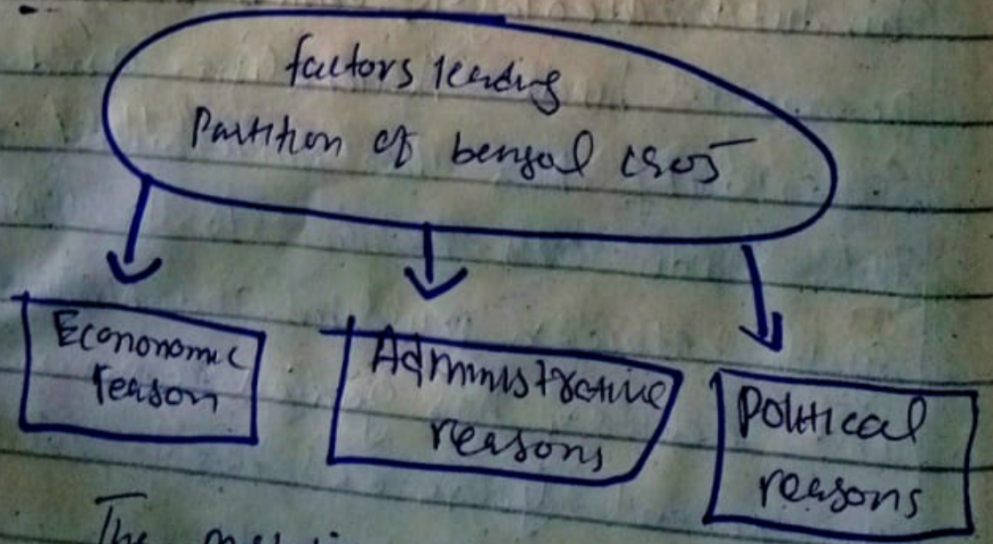 factors leading
Partition of bengal 1905
Econonomic
reason
Administrative
reasons
Political
reasons
The